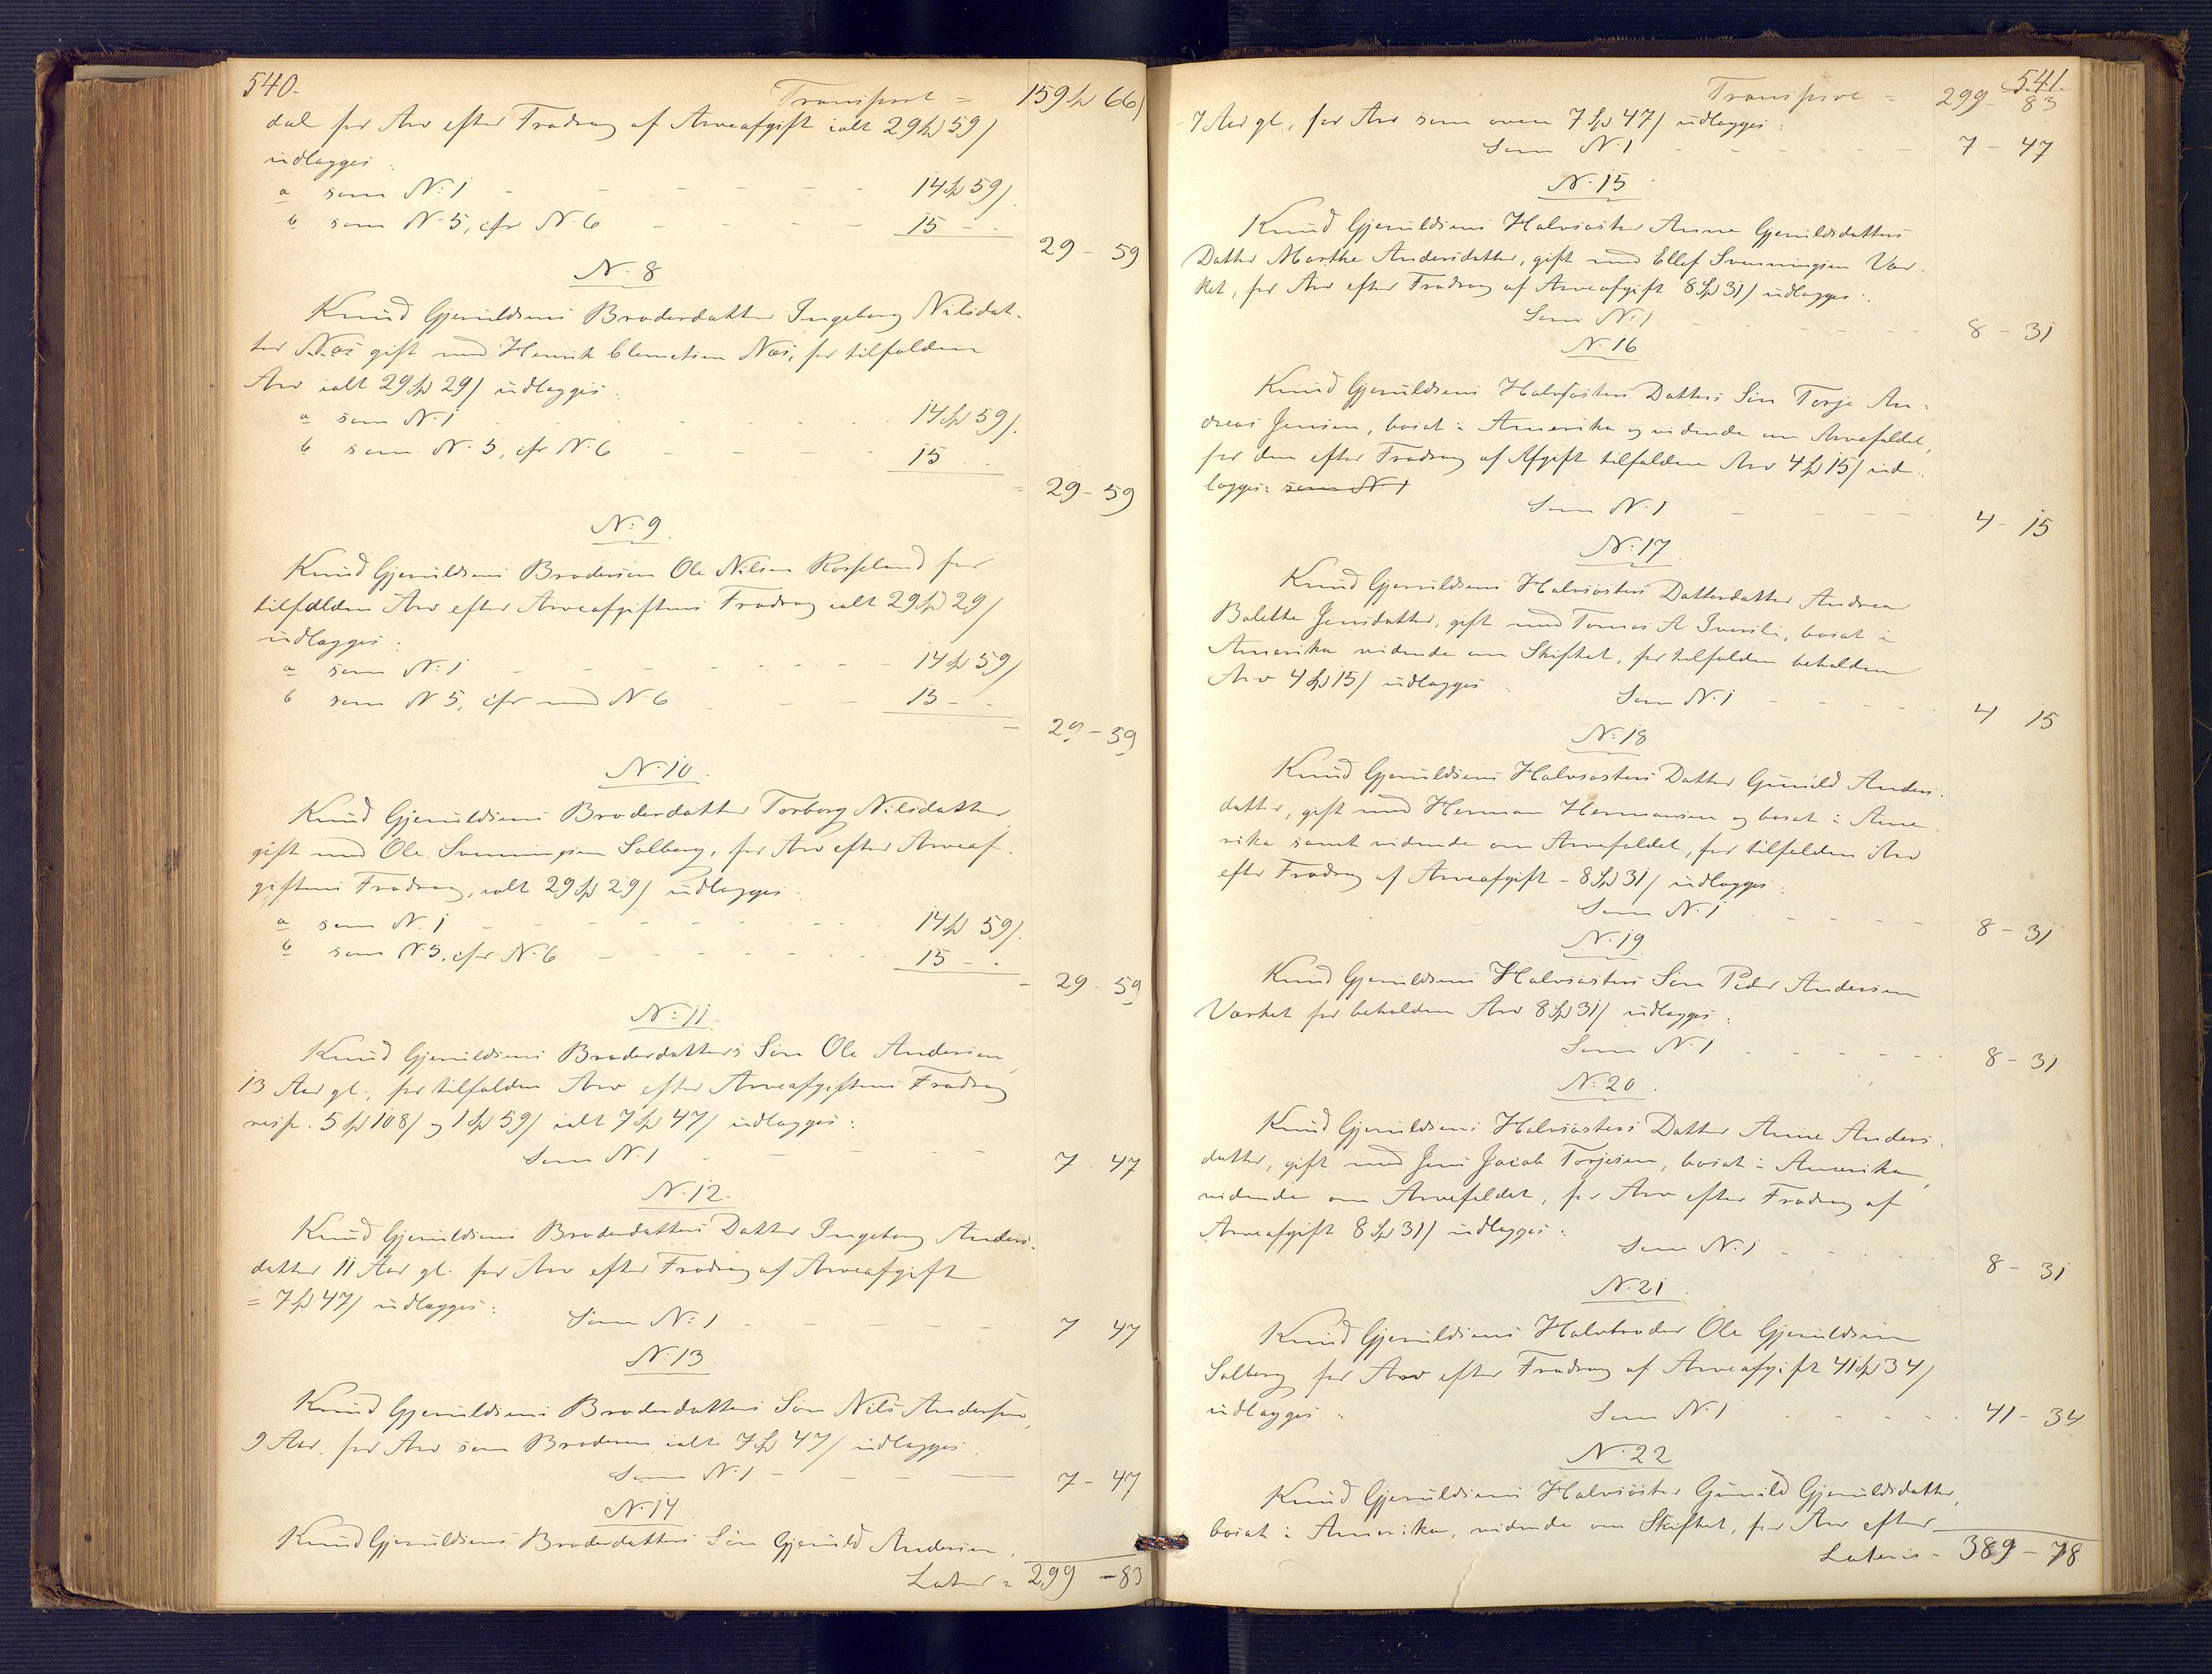 540.
Transport = 159 Sp 66 s
dal for Arv efter Fradrag af Arveafgift ialt 29 Sp 59 s
udlægges:
a som N. 1 - - - - - - 14 Sp 59 s.
b som N. 5, cfr N. 6 - - - - 15 - -
29 - 59
N. 8
Knud Gjeruldsens Broderdatter Ingeborg Nilsdat-
ter Næs gift med Henrik Clemetsen Næs, for tilfalden
Arv ialt 29 Sp 29 s udlægges:
a som N. 1 - - - - - 14 Sp 59 s.
b som N. 5, cfr N. 6 - - - - 15 -
= 29 - 59
N. 9.
Knud Gjeruldsens Brodersøn Ole Nilsen Rosseland for
tilfalden Arv efter Arveafgiftens Fradrag ialt 29 Sp 29 s
udlægges:
a som N. 1 - - - - - - 14 Sp 59 s
b som N 5, cfr med N 6 - - - 15 - -
- 29 - 59
N. 10.
Knud Gjeruldsens Broderdatter Torborg Nilsdatter,
gift med Ole Svenningsen Solberg, for Arv efter Arveaf-
giftens Fradrag, ialt 29 Sp 29 s udlægges:
a som N. 1 - - - - - - 14 Sp 59 s.
b som N. 5, cfr N. 6 - - - - - 15 - -
- 29 - 59
N. 11.
Knud Gjeruldsens Broderdatters Søn Ole Andersen,
13 Aar gl., for tilfalden Arv efter Arveafgiftens Fradrag
resp. 5 Sp 108 s og 1 Sp 59 s ialt 7 Sp 47 s udlægges:
Som N. 1 - - - - - - 7 - 47
N. 12.
Knud Gjeruldsens Broderdatters Datter Ingeborg Anders-
datter 11 Aar gl. for Arv efter Fradrag af Arveafgift
= 7 Sp 47 s udlægges:
Som N. 1 - - - - - 7 47
N. 13.
Knud Gjeruldsens Broderdatters Søn Nils Andersen,
9 Aar, for Arv som Broderen, ialt 7 Sp 47 s udlægges:
Som N. 1 - - - - 7 - 47
N. 14
Knud Gjeruldsens Broderdatters Søn Gjeruld Andersen,
Latus = 299 - 83
541.
Transport = 299 - 83
7 Aar gl., for Arv som oven 7 Sp 47 s udlægges:
Som N. 1 - - - - - - - 7 - 47
N. 15
Knud Gjeruldsens Halvsøster Anne Gjeruldsdatters
Datter Marthe Andersdatter, gift med Ellef Svenningsen Vær-
ket, for Arv efter Fradrag af Arveafgift 8 Sp 31 s udlægges:
Som N. 1 - - - - - - 8 - 31
N. 16
Knud Gjeruldsens Halvsøsters Datters Søn Torje An-
dreas Jensen, bosat i Amerika og vidende om Arvefaldet,
for den efter Fradrag af Afgift tilfalden Arv 4 Sp 15 s ud-
lægges: som N. 1
Som N. 1 - - - - 4 - 15
N. 17
Knud Gjeruldsens Halvsøsters Datterdatter Andrea
Bolette Jensdatter, gift med Tomas A. , bosat i
Amerika vidende om Skiftet, for tilfalden beholden
Arv 4 Sp 15 s udlægges:
Som N. 1 - - - - - 4 15
N. 18
Knud Gjeruldsens Halvsøsters Datter Gunild Anders-
datter, gift med Herman Hermansen og bosat i Ame-
rika samt vidende om Arvefaldet, for tilfalden Arv
efter Fradrag af Arveafgift - 8 Sp 31 s udlægges:
Som N. 1 - - - - - 8 - 31
N. 19.
Knud Gjeruldsens Halvsøsters Søn Peder Andersen
Værket for beholden Arv 8 Sp 31 s udlægges:
Som N. 1 - - - - - - 8 - 31
N. 20.
Knud Gjeruldsens Halvsøsters Datter Anne Anders-
datter, gift med Jens Jacob Torjesen, bosat i Amerika,
vidende om Arvefaldet, for Arv efter Fradrag af
Arveafgift 8 Sp 31 s udlægges:
Som N. 1 - - - - 8 - 31
N. 21.
Knud Gjeruldsens Halvbroder Ole Gjeruldsen
Solberg for Arv efter Fradrag af Arveafgift 41 Sp 34 s
udlægges:
Som N. 1 - - - - - 41 - 34
N. 22
Knud Gjeruldsens Halvsøster Gunild Gjeruldsdatter,
bosat i Amerika, vidende om Skiftet, for Arv efter
Lateris = 389 - 78